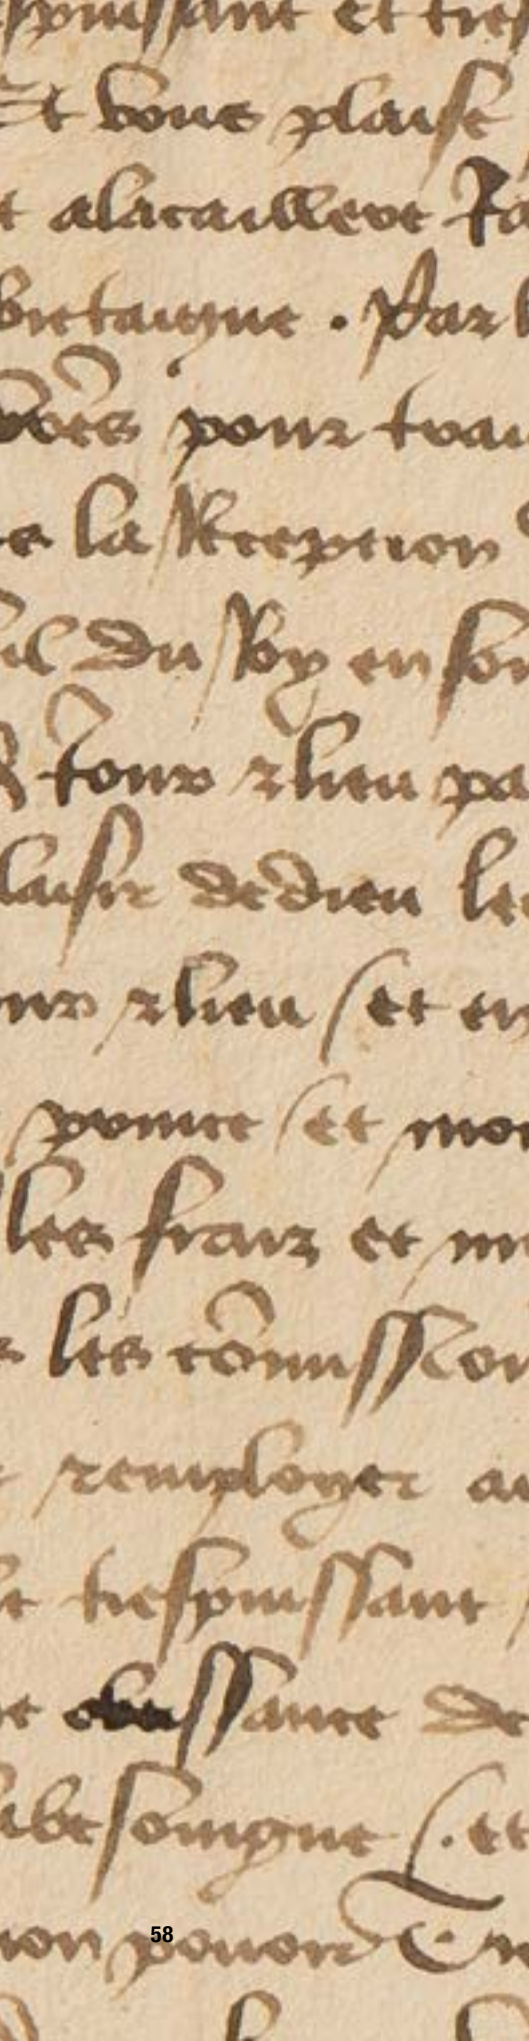 espuissant et tres
Et vous plaise
et alacaillere Ra
bretaigne . Par l
vo͠es pour trai
la Reception
il du Roy en son
tour ⁊ lieu pa
laisir de dieu les
our ⁊ lieu / et en
prince / et mon
les fraiz et m
les com̄ission
remployer au
trespuissant
obeissance de
besoingne / . et
mon pouoir Tre
58